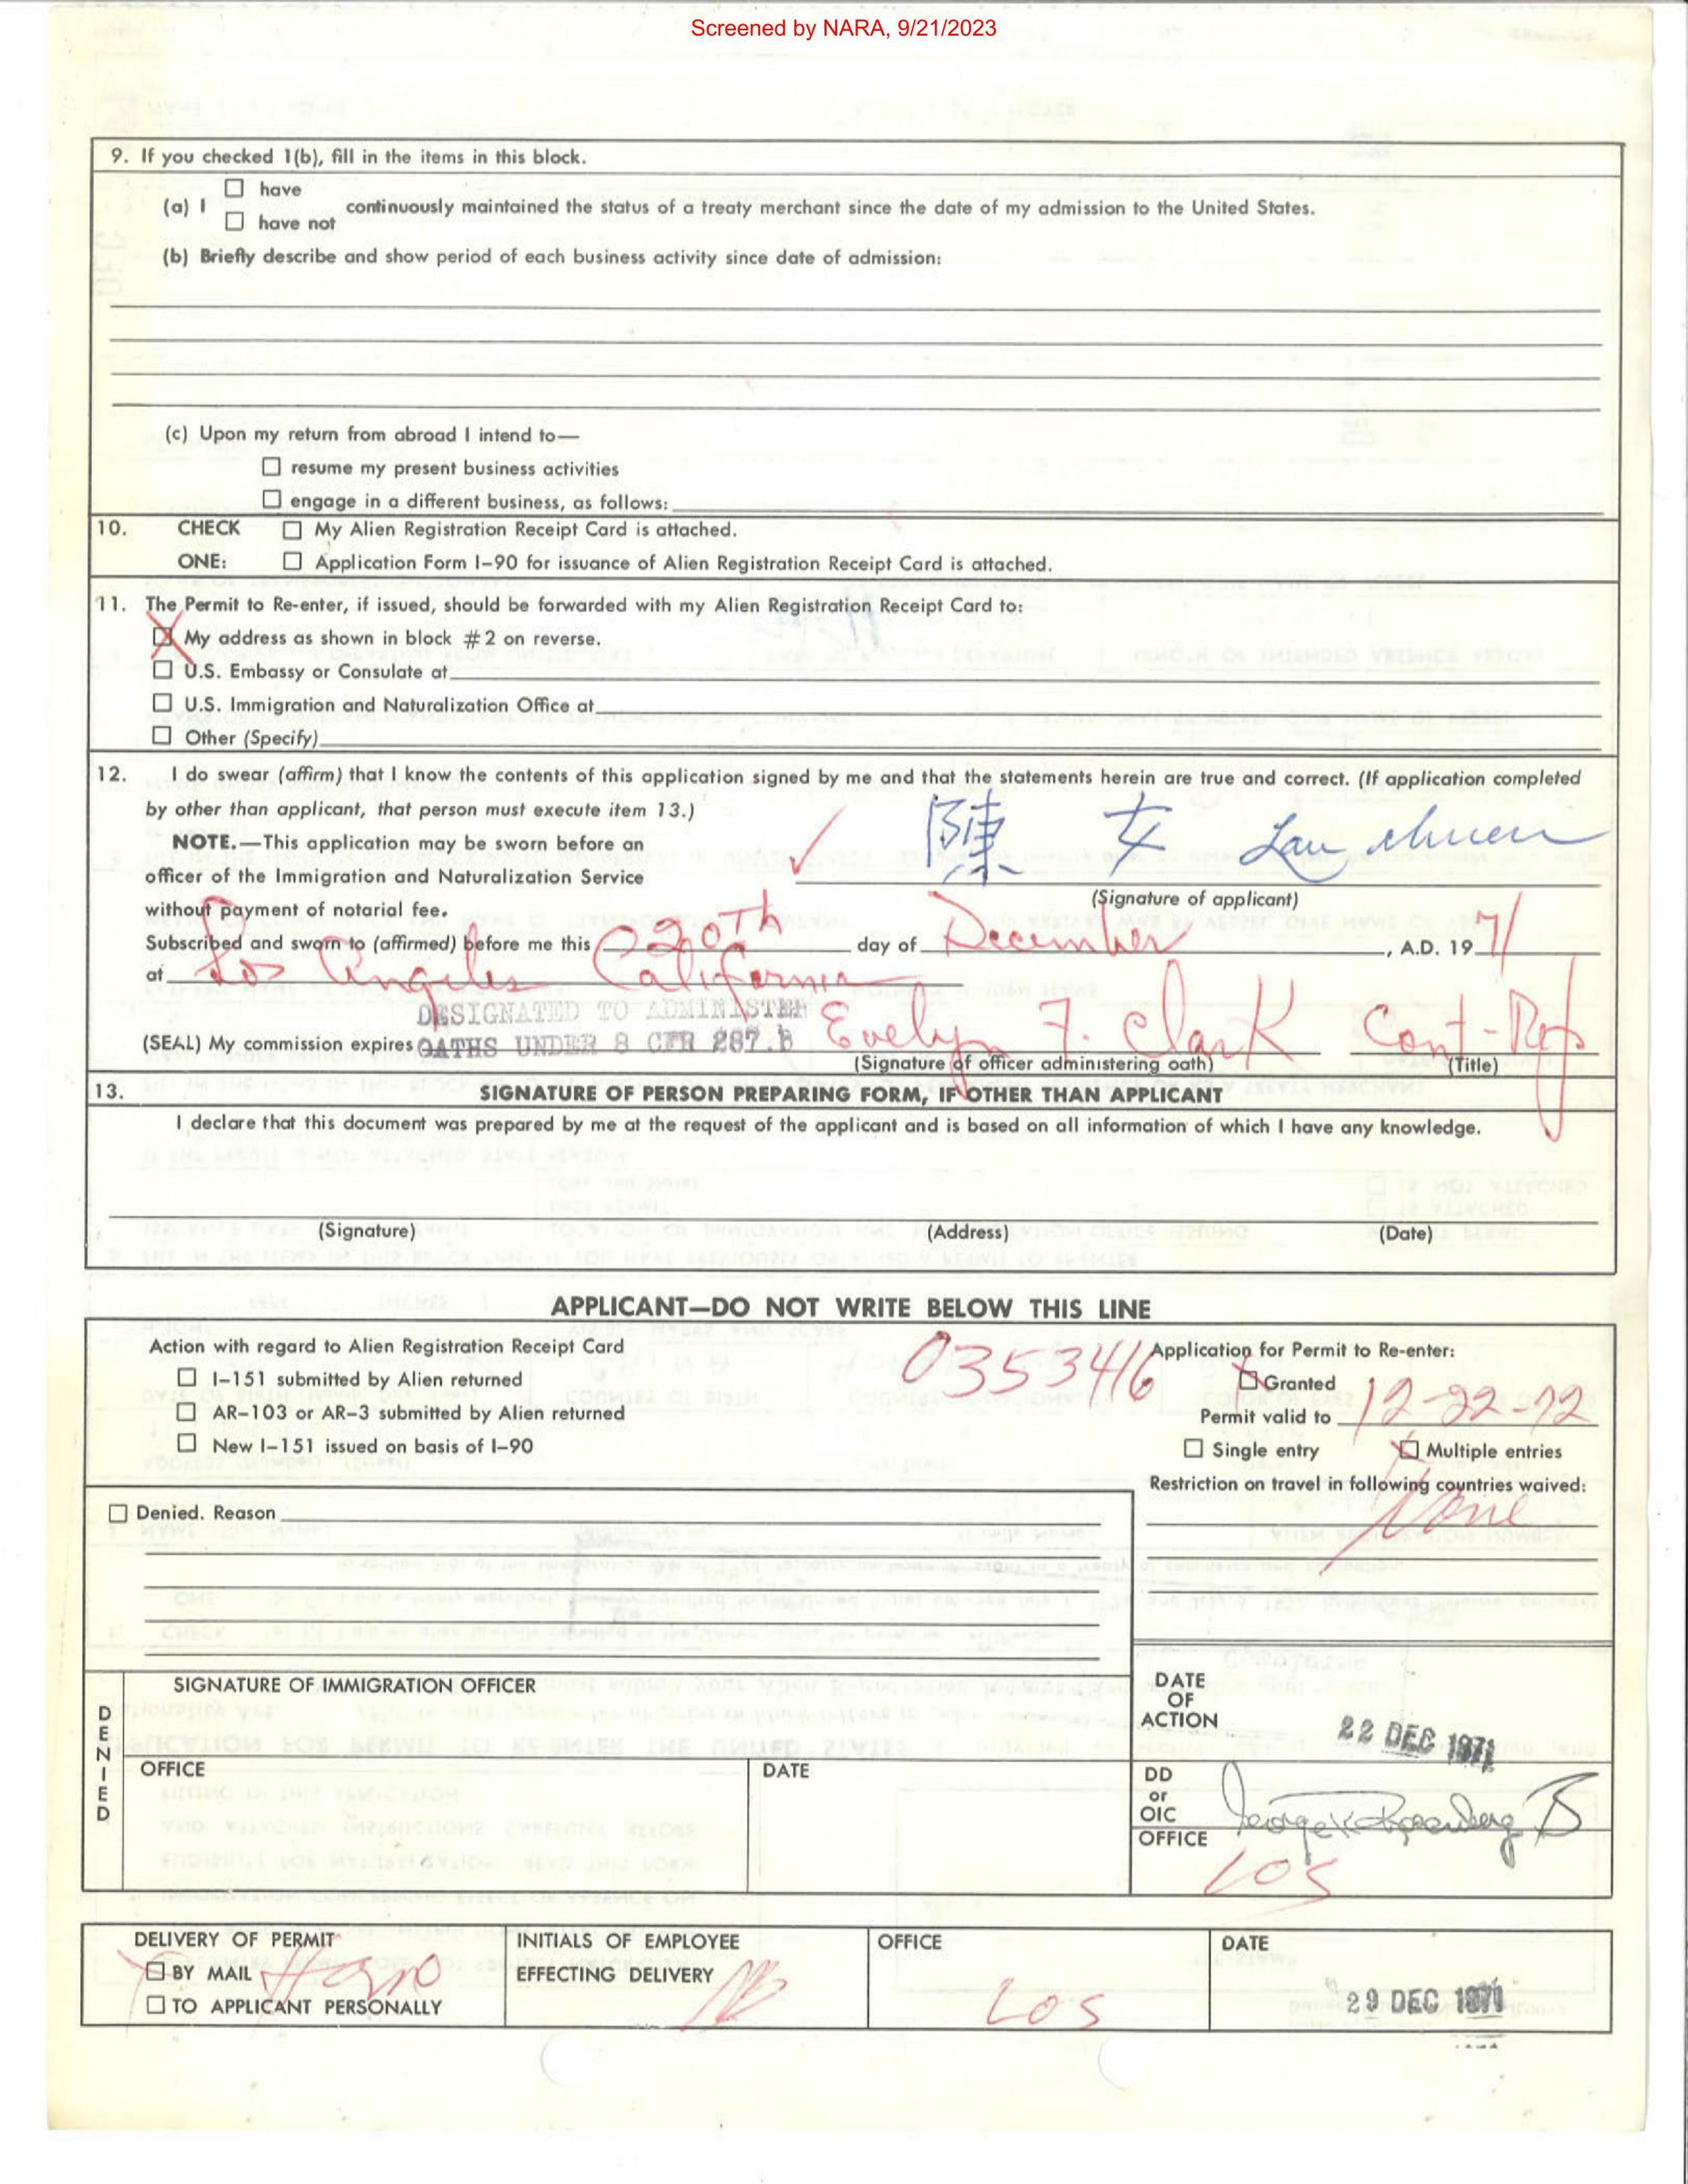 Screened by NARA, 9/21/2023
9. If you checked 1(b), fill in the items in this block.
(a) I ☐ have
☐ have not
continuously maintained the status of a treaty merchant since the date of my admission to the United States.
(b) Briefly describe and show period of each business activity since date of admission:
(c) Upon my return from abroad I intend to—
☐ resume my present business activities
☐ engage in a different business, as follows:
10. CHECK ☐ My Alien Registration Receipt Card is attached.
ONE: ☐ Application Form I-90 for issuance of Alien Registration Receipt Card is attached.
11. The Permit to Re-enter, if issued, should be forwarded with my Alien Registration Receipt Card to:
☒ My address as shown in block #2 on reverse.
☐ U.S. Embassy or Consulate at
☐ U.S. Immigration and Naturalization Office at
☐ Other (Specify)
12. I do swear (affirm) that I know the contents of this application signed by me and that the statements herein are true and correct. (If application completed
by other than applicant, that person must execute item 13.)
NOTE.—This application may be sworn before an
officer of the Immigration and Naturalization Service
without payment of notarial fee.
陳 女 Lau chuen
(Signature of applicant)
Subscribed and sworn to (affirmed) before me this 20th day of December, A.D. 1971
at Los Angeles California
DESIGNATED TO ADMINISTER
(SEAL) My commission expires OATHS UNDER 8 CFR 287.5 Evelyn F. Clark Cont-Rep
(Signature of officer administering oath) (Title)
13. SIGNATURE OF PERSON PREPARING FORM, IF OTHER THAN APPLICANT
I declare that this document was prepared by me at the request of the applicant and is based on all information of which I have any knowledge.
(Signature) (Address) (Date)
APPLICANT—DO NOT WRITE BELOW THIS LINE
Action with regard to Alien Registration Receipt Card
☐ I-151 submitted by Alien returned
☐ AR-103 or AR-3 submitted by Alien returned
☐ New I-151 issued on basis of I-90
0353416
Application for Permit to Re-enter:
☒ Granted
Permit valid to 12-22-72
☐ Single entry ☒ Multiple entries
Restriction on travel in following countries waived:
None
☐ Denied. Reason
DENIED
SIGNATURE OF IMMIGRATION OFFICER
OFFICE DATE
DATE
OF
ACTION
22 DEC 1971
DD
or
OIC
George K. Rosenberg
OFFICE
LOS
DELIVERY OF PERMIT
☒ BY MAIL
☐ TO APPLICANT PERSONALLY
INITIALS OF EMPLOYEE
EFFECTING DELIVERY
OFFICE
LOS
DATE
29 DEC 1971